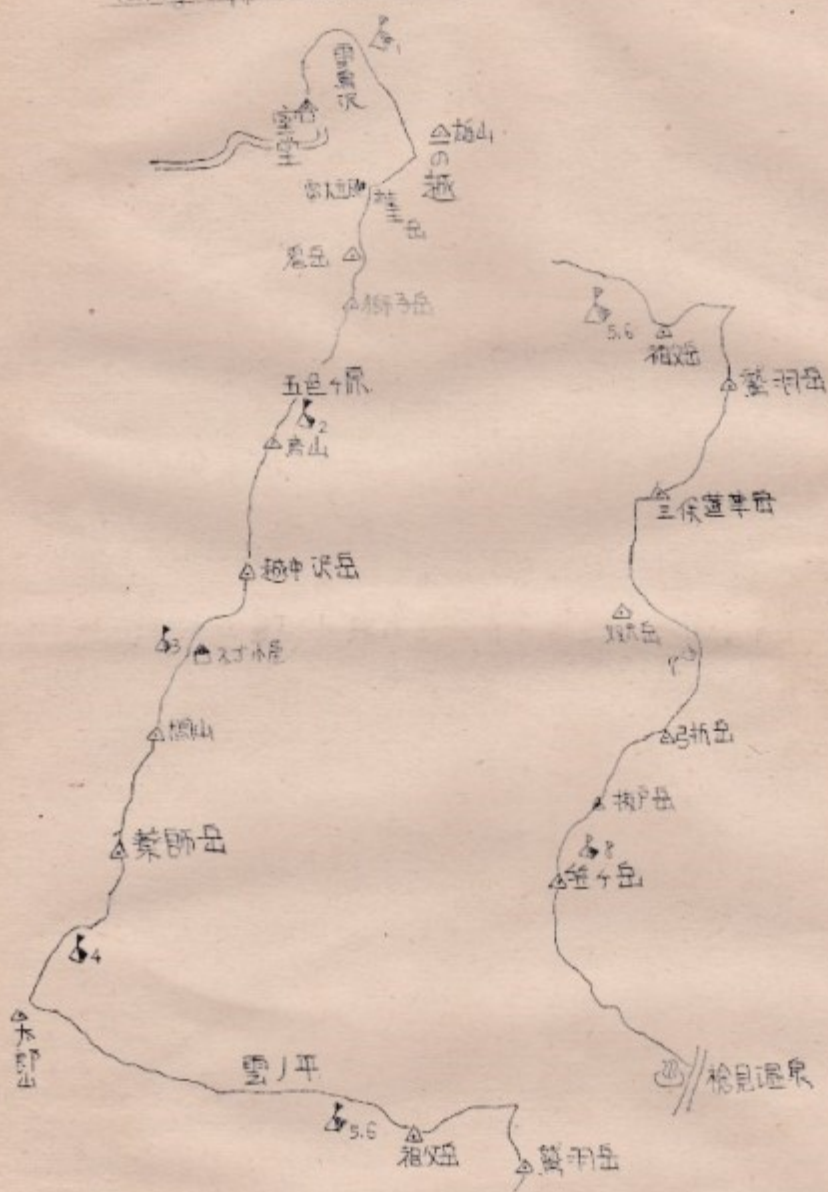 1
雷鳥沢
室堂
雄山
一の越
龍王岳
鬼岳
獅子岳
五色ヶ原
2
鳶山
越中沢岳
3
スゴ小屋
間山
薬師岳
4
太郎山
雲ノ平
5.6
祖父岳
鷲羽岳
5.6
祖父岳
鷲羽岳
三俣蓮華岳
双六岳
7
弓折岳
抜戸岳
8
笠ヶ岳
槍見温泉